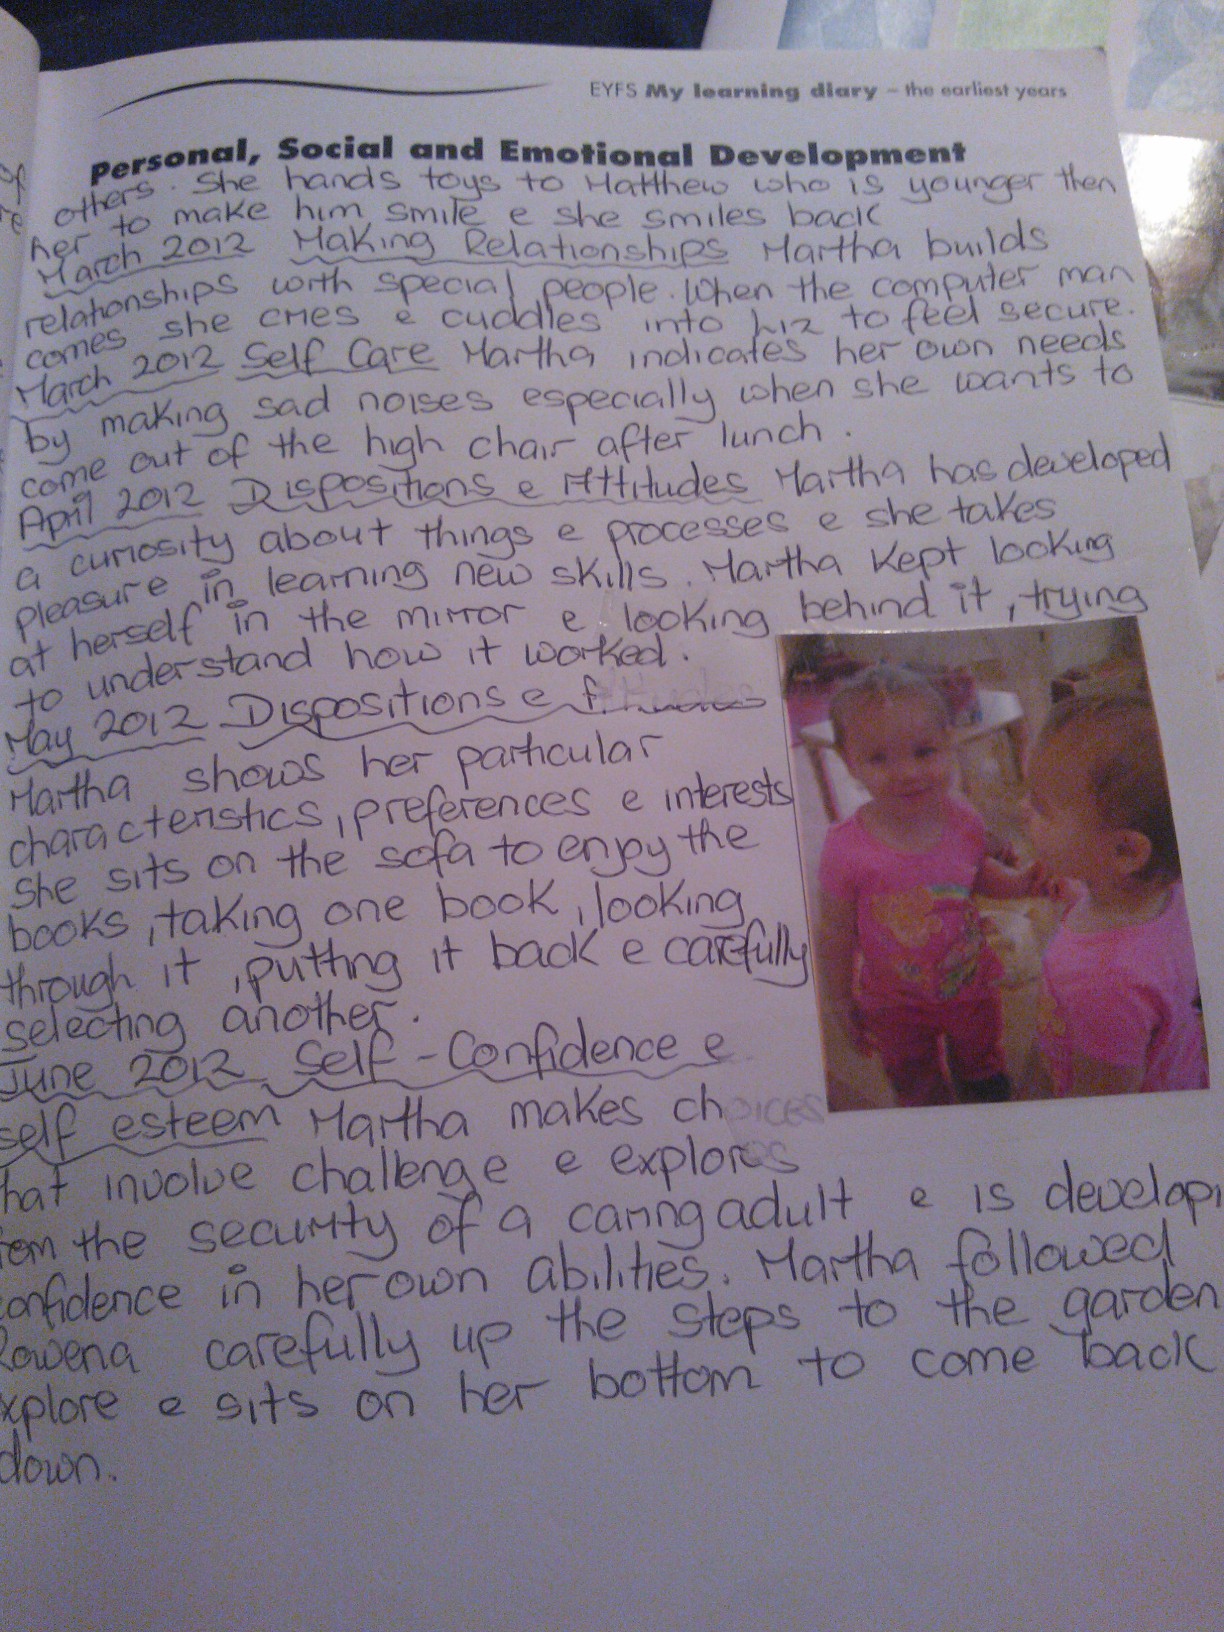 EYFS My learning diary – the earliest years
Personal, Social and Emotional Development
others. She hands toys to Matthew who is younger then
her to make him smile e she smiles back
March 2012 Making Relationships Martha builds
relationships with special people. When the computer man
comes she cries e cuddles into Liz to feel secure.
March 2012 Self Care Martha indicates her own needs
by making sad noises especially when she wants to
come out of the high chair after lunch.
April 2012 Dispositions e Attitudes Martha has developed
a curiosity about things e processes e she takes
pleasure in learning new skills. Martha kept looking
at herself in the mirror e looking behind it, trying
to understand how it worked.
May 2012 Dispositions e Attitudes
Martha shows her particular
characteristics, preferences e interests
She sits on the sofa to enjoy the
books, taking one book, looking
through it, putting it back e carefully
selecting another.
June 2012 Self-Confidence e
self esteem Martha makes choices
hat involve challenge e explores
rom the security of a caring adult e is developi
onfidence in her own abilities. Martha followed
Rowena carefully up the steps to the garden
xplore e sits on her bottom to come back
down.